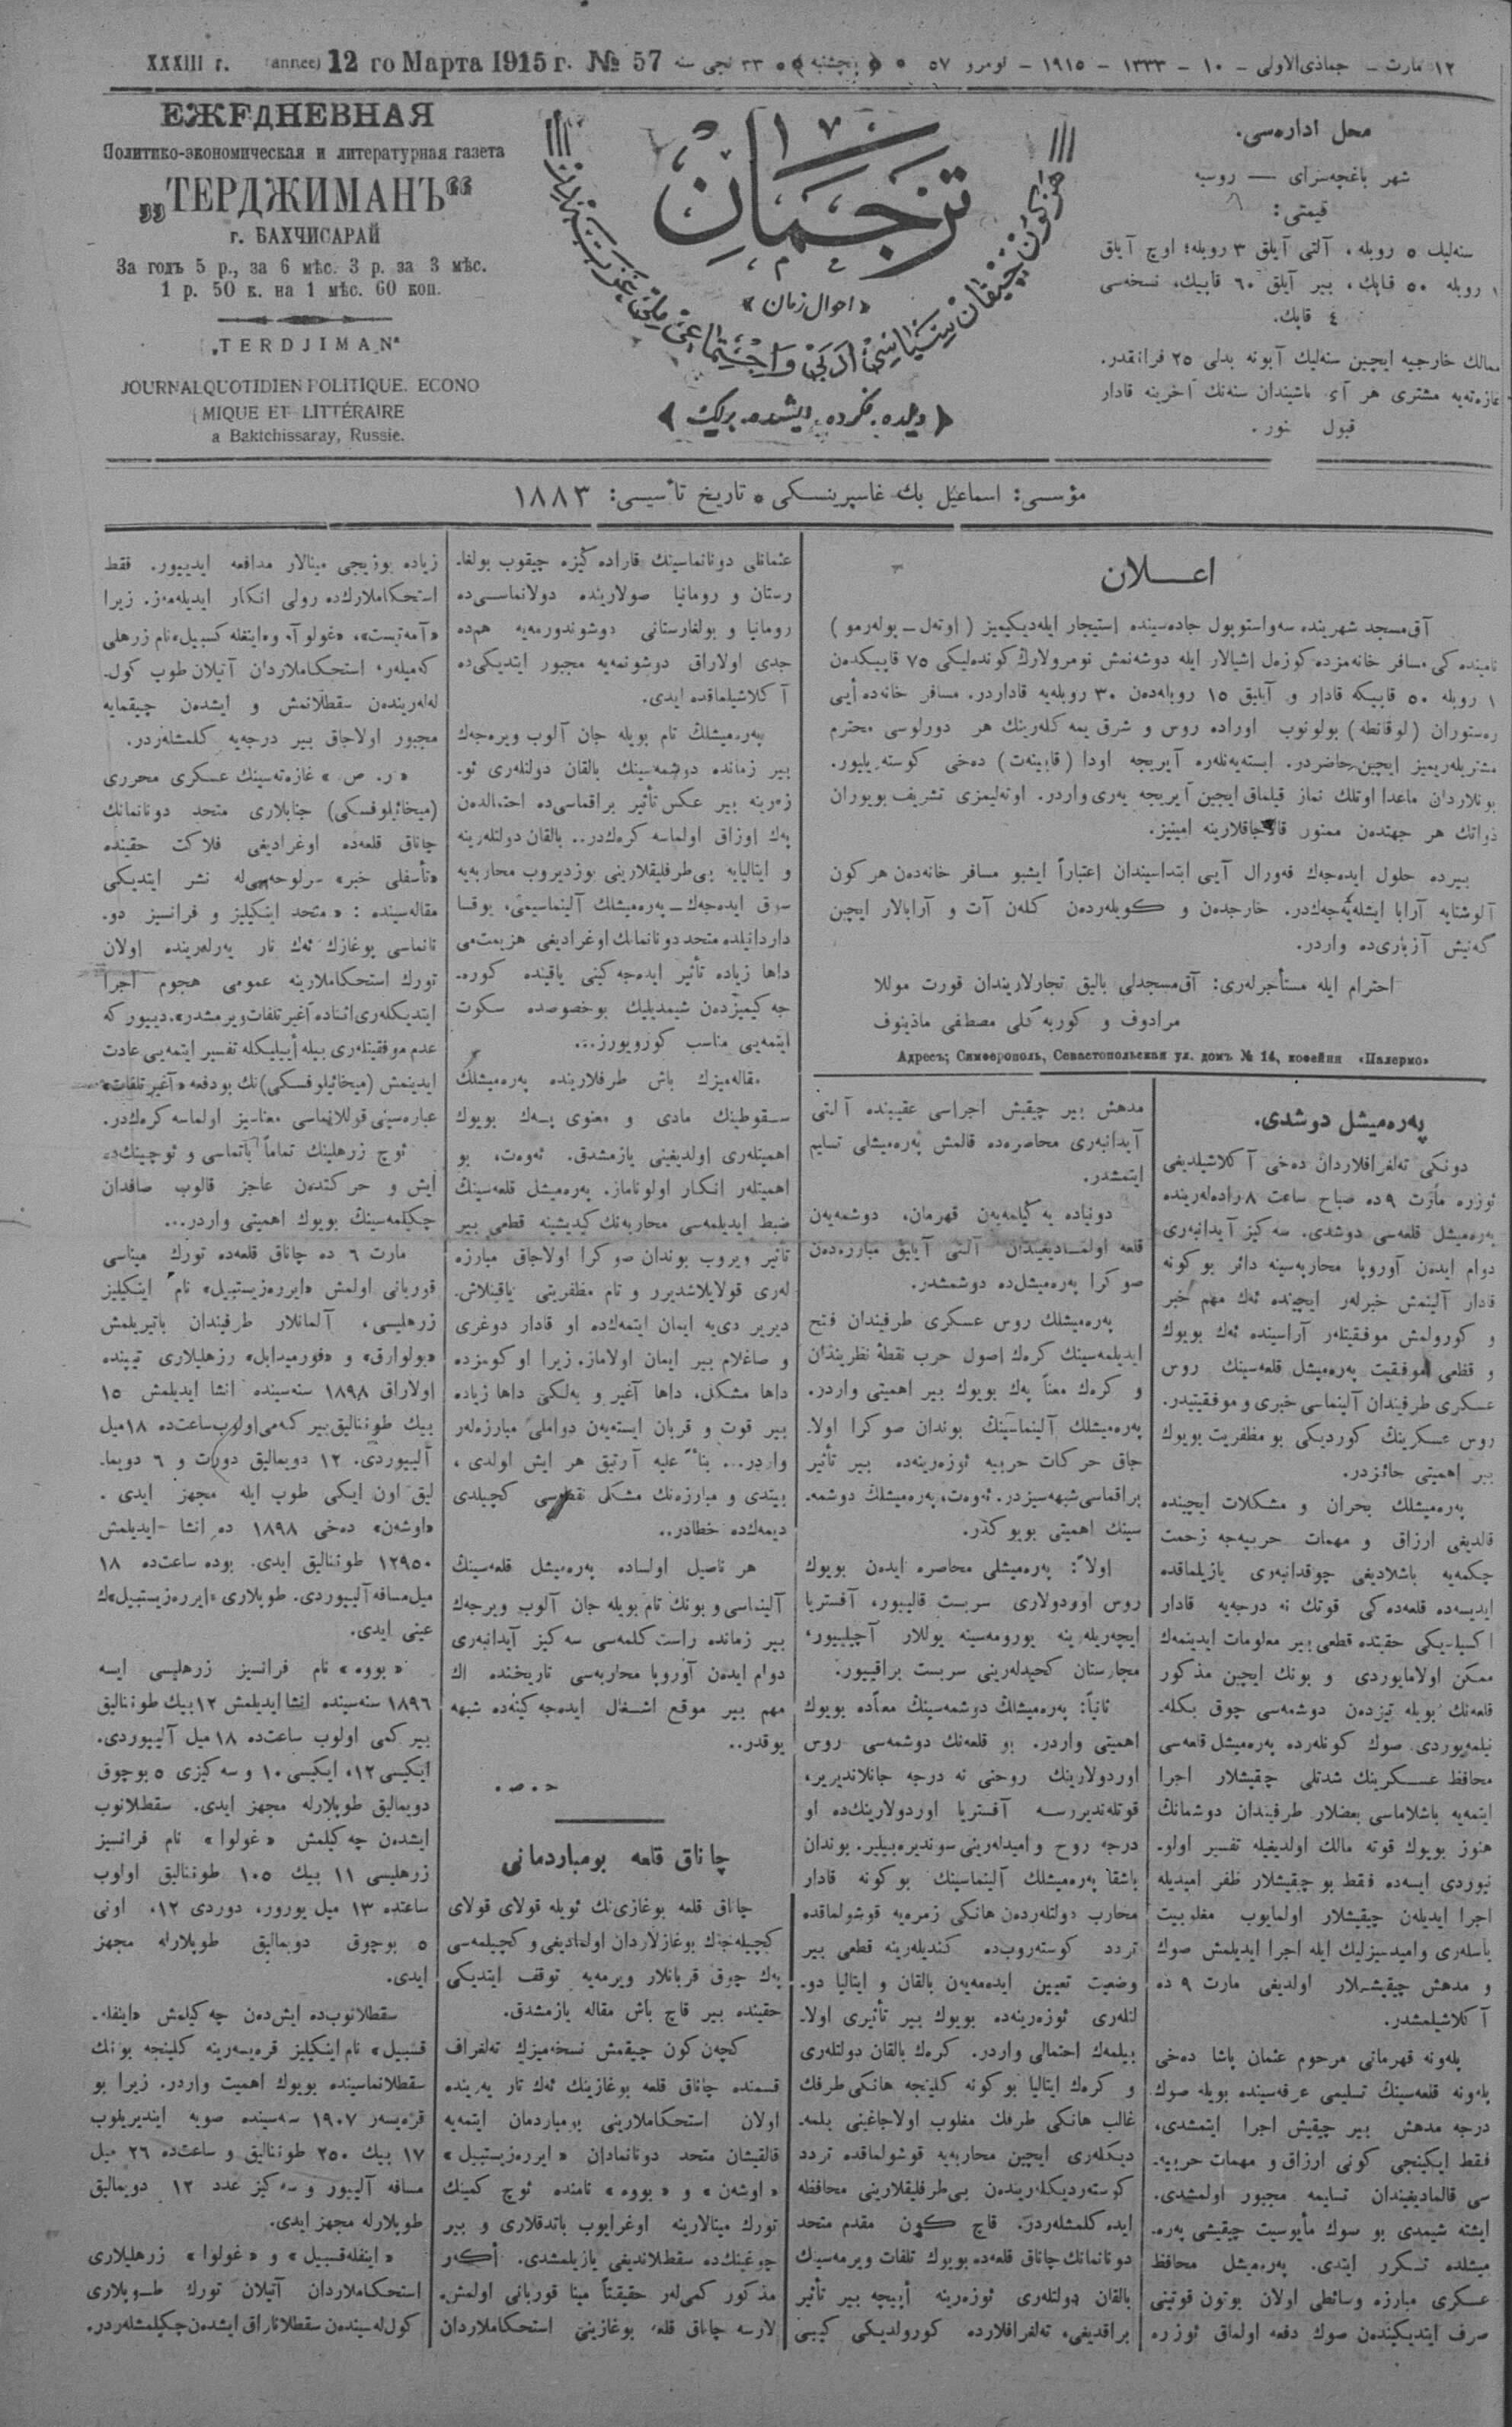 XXXIII г. (annee) 12 го Марта 1915 г. № 57 ٣٣ نجی سنه ﴿پنچشنبه﴾ ١٢ مارت ـ جماذی‌الاولی ـ ١٠ ـ ١٣٣٣ ـ ١٩١٥ ـ نومرو ٥٧
ЕЖЕДНЕВНАЯ
Политико-экономическая и литературная газета
„ТЕРДЖИМАНЪ“
г. БАХЧИСАРАЙ
За годъ 5 р., за 6 мѣс. 3 р. за 3 мѣс.
1 р. 50 к. на 1 мѣс. 60 коп.
„TERDJIMAN“
JOURNAL QUOTIDIEN POLITIQUE. ECONO
MIQUE ET LITTÉRAIRE
a Baktchissaray, Russie.
ترجمان
«احوال زمان»
﴿ دیلده. فکرده. ایشده. برلیك ﴾
محل اداره‌سی.
شهر باغچه‌سرای — روسیه
قیمتی:
سنه‌لیك ٥ روبله، آلتی آیلق ٣ روبله؛ اوچ آیلق
١ روبله ٥٠ قاپك، بیر آیلق ٦٠ قاپیك، نسخه‌سی
٤ قاپك.
ممالك خارجیه ایچین سنه‌لیك آبونه بدلی ٢٥ فرانقدر.
غازه‌ته‌یه مشتری هر آی باشیندان سنه‌نك آخرینه قادار
قبول
مؤسسی: اسماعیل بك غاسپرینسكی • تاریخ تأسیسی: ١٨٨٣
اعـــلان
آق‌مسجد شهرینده سه‌واستوپول جاده‌سینده إستیجار ایله‌دیكیمیز (اوته‌ل ـ پوله‌رمو)
نامینده كی مسافر خانه‌مزده كوزه‌ل إشیالار ایله دوشه‌نمش نومرولارڭ كونده‌لیكی ٧٥ قاپیكدن
١ روبله ٥٠ قاپیكه قادار و آیلیق ١٥ روبله‌دن ٣٠ روبله‌یه قاداردر. مسافر خانه‌ده أیی
ره‌ستوران (لوقانطه) بولونوب اوراده روس و شرق یمه كله‌رینك هر دورلوسی محترم
مشتریله‌ریمیز ایچین حاضردر. ایسته‌یه‌نله‌ره آیریجه اودا (قابینه‌ت) ده‌خی
بونلاردان ماعدا اوتلك نماز قیلماق ایچین آیریجه یه‌ری واردر. اوته‌لیمزی تشریف بویوران
ذواتك هر جهتدن ممنون قالاجاقلارینه امینیز.
بیرده حلول ایده‌جه‌ك فه‌ورال آیی ابتداسیندان اعتباراً ایشبو مسافر خانه‌دن هر كون
آلوشتایه آرابا ایشله‌یه‌جه‌كدر. خارجدن و كویله‌ردن كله‌ن آت و آرابالار ایچین
كه‌نیش آزباری‌ده واردر.
احترام ایله مستأجرله‌ری: آق‌مسجدلی بالیق تجارلاریندان قورت موللا
مرادوف و كوربه كلی مصطفی ماذینوف
Адресъ; Симферополь, Севастопольская ул. домъ № 14, кофейня «Палермо»
په‌ره‌میشل دوشدی.
دونكی ته‌لغرافلاردان ده‌خی آكلاشیلدیغی
ئوزره مارت ٩ ده صباح ساعت ٨ راده‌له‌رینده
په‌ره‌میشل قلعه‌سی دوشدی. سه كیز آیدانبه‌ری
دوام ایده‌ن آوروپا محاربه‌سینه دائر بو كونه
قادار آلینمش خبرله‌ر ایچنده ئه‌ك مهم خبر
و كورولمش موفقیتله‌ر آراسینده ئه‌ك بویوك
و قطعی موفقیت په‌ره‌میشل قلعه‌سینك روس
عسكری طرفیندان آلینماسی خبری و موفقیتیدر.
روس عسكرینك كوردیكی بو مظفریت بویوك
بیر إهمیتی حائزدر.
په‌ره‌میشلك بحران و مشكلات ایچینده
قالدیغی ارزاق و مهمات حربیه‌جه زحمت
چكمه‌یه باشلادیغی چوقدانبه‌ری یازیلماقده
ایدیسه‌ده قلعه‌ده كی قوتك نه درجه‌یه قادار
حقینده قطعی بیر معلومات ایدینمه‌ك
ممكن اولامایوردی و بونك ایچین مذكور
قلعه‌نك بویله تیزدن دوشمه‌سی چوق بكله‌ـ
نیلمه‌یوردی. صوك كونله‌رده په‌ره‌میشل قلعه‌سی
محافظ عسكرینك شدتلی چقیشلار اجرا
ایتمه‌یه باشلاماسی بعضلار طرفیندان دوشمانڭ
هنوز بویوك قوته مالك اولدیغیله تفسیر اولوـ
نیوردی ایسه‌ده فقط بو چیقیشلار ظفر امیدیله
اجرا ایدیله‌ن چیقیشلار اولمایوب مغلوبیت
یأسله‌ری وامیدسیزلیك ایله اجرا ایدیلمش صوك
و مدهش چیقیشلار اولدیغی مارت ٩ ده
آكلاشیلمشدر.
پله‌ونه قهرمانی مرحوم عثمان پاشا ده‌خی
پله‌ونه قلعه‌سینڭ تسلیمی عرفه‌سینده بویله صوك
درجه مدهش بیر چیقیش اجرا ایتمشدی،
فقط ایكینجی كونی ارزاق و مهمات حربیه‌ـ
سی قالمادیغیندان تسلیمه مجبور اولمشدی.
ایشته شیمدی بو صوك مأیوسیت چیقیشی په‌ره‌ـ
میشلده تكرر ایتدی. په‌ره‌میشل محافظ
عسكری مبارزه وسائطی اولان بوتون قوتینی
صرف ایتدیكیندن صوك دفعه اولماق ئوزره
مدهش بیر چیقیش اجراسی عقیبنده آلتی
آیدانبه‌ری محاصره‌ده قالمش په‌ره‌میشلی تسلیم
ایتمشدر.
دونیاده یه كیلمه‌یه‌ن قهرمان، دوشمه‌یه‌ن
قلعه اولمادیغیندان آلتی آیلیق مبارزه‌دن
صوكرا په‌ره‌میشل‌ده دوشمشدر.
په‌ره‌میشلك روس عسكری طرفیندان فتح
ایدیلمه‌سینك كرك إصول حرب نقطۀ نظریندان
و كره‌ك معناً په‌ك بویوك بیر اهمیتی واردر.
په‌ره‌میشلك آلینماسینڭ بوندان صوكرا اولاـ
جاق حركات حربیه ئوزه‌رینه‌ده بیر تأثیر
براقماسی شبهه‌سیزدر. ئه‌وه‌ت، په‌ره‌میشلڭ دوشمه‌ـ
سینك اهمیتی بویوكدر.
اولاً: په‌ره‌میشلی محاصره ایده‌ن بویوك
روس اوردولاری سربست قالیبور، آفستریا
ایچه‌ریله‌رینه یورومه‌سینه یوللار آچیلیبور،
مجارستان كچیدله‌رینی سربست براقیبور.
ثانیاً: په‌ره‌میشلڭ دوشمه‌سینڭ معناًده بویوك
اهمیتی واردر. بو قلعه‌نك دوشمه‌سی روس
اوردولارینك روحنی نه درجه جانلاندیریر،
قوتله‌ندیررسه آفستریا اوردولارینك‌ده او
درجه روح و امیدله‌رینی سوندیره‌بیلیر. بوندان
باشقا په‌ره‌میشلك آلینماسینك بوكونه قادار
محارب دولتله‌ردن هانكی زمره‌یه قوشولماقده
تردد كوسته‌روب‌ده كندیله‌رینه قطعی بیر
وضعیت تعیین ایده‌مه‌یه‌ن بالقان و ایتالیا دوـ
لتله‌ری ئوزه‌رینه‌ده بویوك بیر تأثیری اولاـ
بیلمه‌ك احتمالی واردر. كره‌ك بالقان دولتله‌ری
و كره‌ك ایتالیا بوكونه كلینجه هانكی طرفك
غالب هانكی طرفك مغلوب اولاجاغینی بلمه‌ـ
دیكله‌ری ایچین محاربه‌یه قوشولماقده تردد
كوسته‌ردیكله‌ریندن بی‌طرفلیقلارینی محافظه
ایده كلمشله‌ردر. قاچ كون مقدم متحد
دونانمانك چاناق قلعه‌ده بویوك تلفات ویرمه‌سینك
بالقان دولتله‌ری ئوزه‌رینه أییجه بیر تأثیر
براقدیغی، ته‌لغرافلارده كورولدیكی كیبی
عثمانلی دونانماسینك قاراده‌كیزه چیقوب بولغاـ
رستان و رومانیا صولارینده دولانماسی‌ده
رومانیا و بولغارستانی دوشوندورمه‌یه هم‌ده
جدی اولاراق دوشونمه‌یه مجبور ایتدیكی‌ده
آكلاشیلماقده ایدی.
په‌ره‌میشلڭ تام بویله جان آلوب ویره‌جه‌ك
بیر زمانده دوشمه‌سینك بالقان دولتله‌ری ئوـ
زه‌رینه بیر عكس تأثیر براقماسی‌ده احتمالدن
په‌ك اوزاق اولماسه كره‌كدر.. بالقان دولتله‌رینه
و ایتالیایه بی‌طرفلیقلارینی بوزدیروب محاربه‌یه
سوق ایده‌جه‌ك ـ په‌ره‌میشلك آلینماسیمی، یوقسا
داردانیلده متحد دونانمانك اوغرادیغی هزیمت‌می
داها زیاده تأثیر ایده‌جه‌كینی یاقینده كوره‌ـ
جه‌كیمیزدن شیمدیلیك بوخصوصده سكوت
ایتمه‌یی مناسب كورویورز...
مقاله‌میزك باش طرفلارینده په‌ره‌میشلڭ
سقوطینك مادی و معنوی په‌ك بویوك
اهمیتله‌ری اولدیغینی یازمشدق. ئه‌وه‌ت، بو
اهمیتله‌ر انكار اولوناماز. په‌ره‌میشل قلعه‌سینڭ
ضبط ایدیلمه‌سی محاربه‌نك كیدیشینه قطعی بیر
تأثیر ویروب بوندان صوكرا اولاجاق مبارزه
له‌ری قولایلاشدیرر و تام مظفریتی یاقینلاش‌ـ
دیریر دی‌یه ایمان ایتمه‌ك‌ده او قادار دوغری
و صاغلام بیر ایمان اولاماز. زیرا اوكومزده
داها مشكل، داها آغیر و به‌لكی داها زیاده
بیر قوت و قربان ایسته‌یه‌ن دواملی مبارزه‌له‌ر
واردر... بناءً علیه آرتیق هر ایش اولدی،
بیتدی و مبارزه‌نك مشكل نقطه‌سی كچیلدی
دیمه‌ك‌ده خطادر..
هر ناصیل اولساده په‌ره‌میشل قلعه‌سینڭ
آلینماسی و بونك تام بویله جان آلوب ویرجه‌ك
بیر زمانده راست كلمه‌سی سه كیز آیدانبه‌ری
دوام ایده‌ن آوروپا محاربه‌سی تاریخنده اك
مهم بیر موقع اشغال ایده‌جه كینه‌ده شبهه
یوقدر..
ح. ص.
چاناق قلعه بومباردمانی
چاناق قلعه بوغازی‌نك ئویله قولای قولای
كچیله‌جك بوغازلاردان اولمادیغی و كچیلمه‌سی
په‌ك چوق قربانلار ویرمه‌یه توقف ایتدیكی
حقینده بیر قاچ باش مقاله یازمشدق.
كچه‌ن كون چیقمش نسخه‌میزك ته‌لغراف
قسمنده چاناق قلعه بوغازینك ئه‌ك تار یه‌رینده
اولان استحكاملارینی بومباردمان ایتمه‌یه
قالقیشان متحد دونانمادان «ایرره‌زیستیبل»
«اوشه‌ن» و «بووه» نامنده ئوچ كمینك
تورك مینالارینه اوغرایوب باتدقلاری و بیر
چوغینك‌ده سقطلاندیغی یازیلمشدی. أكه‌ر
مذكور كمی‌له‌ر حقیقتاً مینا قوربانی اولمش‌ـ
لارسه چاناق قلعه بوغازینی استحكاملاردان
زیاده بوزیجی مینالار مدافعه ایدیبور. فقط
استحكاملارك‌ده رولی انكار ایدیله‌مه‌ز. زیرا
«آمه‌تیست»، «غولوآ» و «اینفله كسیبل» نام زرهلی
كه‌میله‌ر، استحكاملاردان آتیلان طوپ كول‌ـ
له‌له‌ریندن سقطلانمش و ایشدن چیقمایه
مجبور اولاجاق بیر درجه‌یه كلمشله‌ردر.
«ر. ص.» غازه‌ته‌سینك عسكری محرری
(میخائیلوفسكی) جنابلاری متحد دونانمانك
چاناق قلعه‌ده اوغرادیغی فلاكت حقینده
«تأسفلی خبر» سرلوحه‌سی‌له نشر ایتدیكی
مقاله‌سینده: «متحد اینكیلیز و فرانسیز دوـ
نانماسی بوغازك ئه‌ك تار یه‌رله‌رینده اولان
تورك استحكاملارینه عمومی هجوم اجرا
ایتدیكله‌ری اثناده آغیر تلفات ویرمشدر». دییور كه
عدم موفقیتله‌ری بیله أییلیكله تفسیر ایتمه‌یی عادت
ایدینمش (میخائیلوفسكی)نك بودفعه «آغیر تلفات»
عباره‌سینی قوللانماسی معناسیز اولماسه كره‌كدر.
ئوچ زرهلینك تماماً باتماسی و ئوچینك‌ده
ایش و حركتدن عاجز قالوب صافدان
چكیلمه‌سینڭ بویوك اهمیتی واردر...
مارت ٦ ده چاناق قلعه‌ده تورك میناسی
قوربانی اولمش «ایرره‌زیستیبل» نام اینكیلیز
زرهلیسی، آلمانلار طرفیندان باتیریلمش
«بولوارق» و «فورمیدابل» زرهلیلاری تیپنده
اولاراق ١٨٩٨ سنه‌سینده انشا ایدیلمش ١٥
بیك طوننالیق بیر كه‌می اولوب ساعت‌ده ١٨ میل
آلیبوردی. ١٢ دویمالیق دورت و ٦ دویماـ
لیق اون ایكی طوپ ایله مجهز ایدی.
«اوشه‌ن» ده‌خی ١٨٩٨ ده انشا ایدیلمش
١٢٩٥٠ طوننالیق ایدی. بوده ساعت‌ده ١٨
میل مسافه آلیبوردی. طوپلاری «ایرره‌زیستیبل»ك
عینی ایدی.
«بووه» نام فرانسیز زرهلیسی ایسه
١٨٩٦ سنه‌سینده انشا ایدیلمش ١٢ بیك طوننالیق
بیر كمی اولوب ساعت‌ده ١٨ میل آلیبوردی.
ایكیسی ١٢، ایكیسی ١٠ و سه كیزی ٥ بوچوق
دویمالیق طوپلارله مجهز ایدی. سقطلانوب
ایشدن چه كیلمش «غولوا» نام فرانسیز
زرهلیسی ١١ بیك ١٠٥ طوننالیق اولوب
ساعتده ١٣ میل یورور، دوردی ١٢، اونی
٥ بوچوق دویمالیق طوپلارله مجهز
ایدی.
سقطلانوب‌ده ایش‌دن چه كیلمش «اینفله‌ـ
قسیبل» نام اینكیلیز قره‌یسه‌رینه كلینجه بونك
سقطلانماسینده بویوك اهمیت واردر. زیرا بو
قره‌یسه‌ر ١٩٠٧ سنه‌سینده صویه ایندیریلوب
١٧ بیك ٢٥٠ طوننالیق و ساعت‌ده ٢٦ میل
مسافه آلیبور و سه كیز عدد ١٢ دویمالیق
طوپلارله مجهز ایدی.
«اینفله‌قسیبل» و «غولوا» زرهلیلاری
استحكاملاردان آتیلان تورك طوپلاری
كولله‌سیندن سقطلاناراق ایشدن چكیلمشله‌ردر.